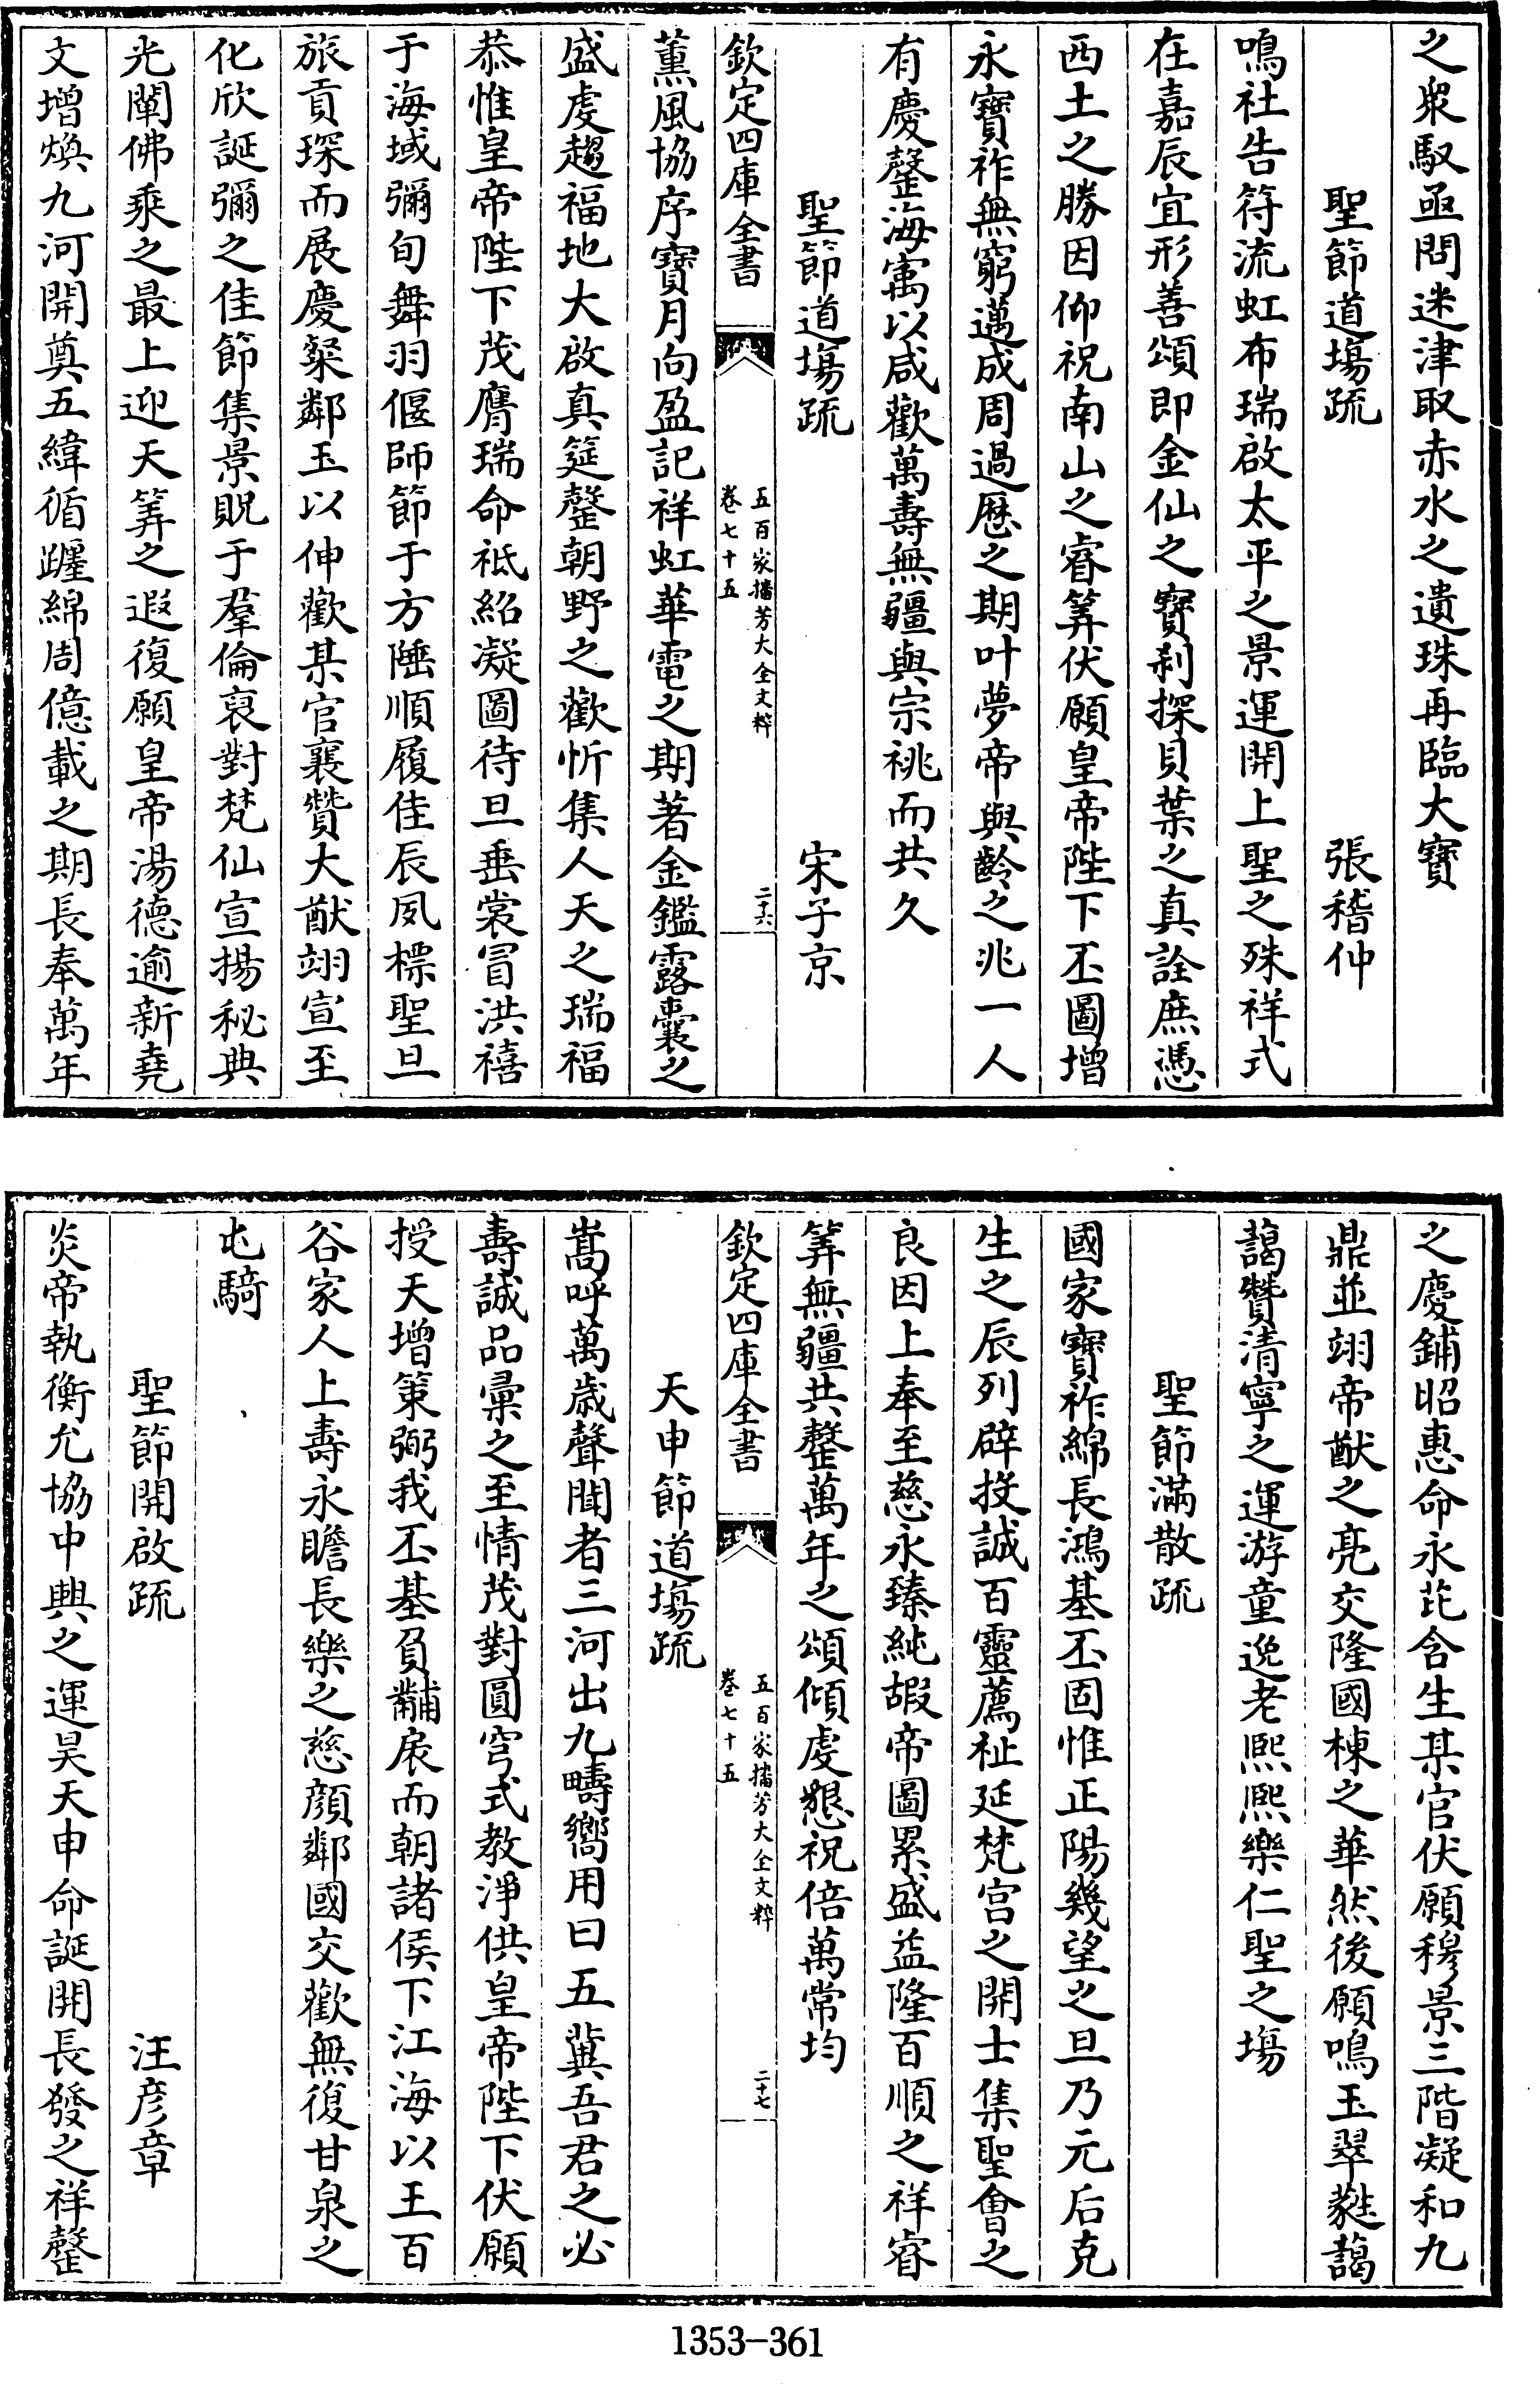 之衆馭亟問迷津取赤水之遺珠再臨大寶
聖節道場疏 張嵇仲
鳴社告符流虹布瑞啟太平之景運開上聖之殊祥式
在嘉辰宜形善頌即金仙之寶刹探貝葉之真詮庶憑
西土之勝因仰祝南山之睿筭伏願皇帝陛下丕圖增
永寶祚無窮邁成周過歷之期叶夢帝與齡之兆一人
有慶罄海㝢以咸歡萬壽無疆與宗祧而共久
聖節道場疏 宋子京
欽定四庫全書 五百家播芳大全文粹 卷七十五 二十六
薰風協序寳月向盈記祥虹華電之期著金鑑露囊之
盛虔趨福地大啟真筵罄朝野之歡忻集人天之瑞福
恭惟皇帝陛下茂膺瑞命祗紹凝圖待旦垂裳冒洪禧
于海域彌旬舞羽偃師節于方陲順履佳辰夙標聖旦
旅貢琛而展慶粲鄰玉以伸歡某官襄贊大猷翊宣至
化欣誕彌之佳節集景貺于羣倫裒對梵仙宣揚秘典
光闡佛乘之最上迎天筭之遐復願皇帝湯德逾新堯
文增煥九河開奠五緯循躔綿周億載之期長奉萬年
之慶鋪昭惠命永芘含生某官伏願穆景三階凝和九
鼎並翊帝猷之亮交隆國棟之華然後願鳴玉翠蕤藹
藹贊清寧之運游童逸老熙熙樂仁聖之場
聖節滿散疏
國家寶祚綿長鴻基丕固惟正陽幾望之旦乃元后克
生之辰列辟投誠百靈薦祉延梵宫之開士集聖會之
良因上奉至慈永臻純嘏帝圖累盛益隆百順之祥睿
筭無疆共罄萬年之頌傾虔懇祝倍萬常均
欽定四庫全書 五百家播芳大全文粹 卷七十五 二十七
天申節道場疏
嵩呼萬歲聲聞者三河出九疇嚮用曰五冀吾君之必
壽誠品彙之至情茂對圓穹式敎淨供皇帝陛下伏願
授天增策弼我丕基負黼扆而朝諸侯下江海以王百
谷家人上壽永瞻長樂之慈顔鄰國交歡無復甘泉之
屯騎
聖節開啟疏 汪彦章
炎帝執衡允協中興之運昊天申命誕開長發之祥罄
1353-361